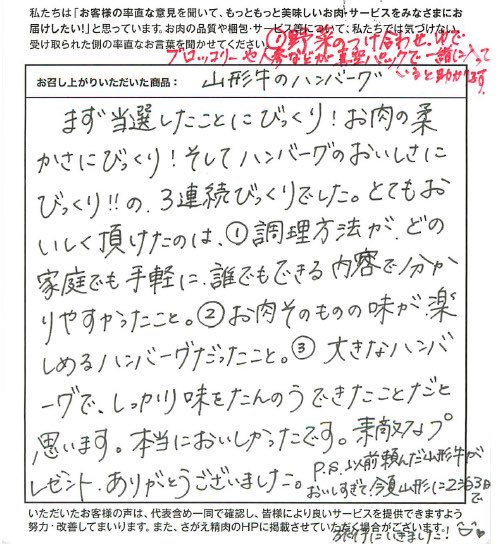 私たちは「お客様の率直な意見を聞いて、もっともっと美味しいお肉・サービスをみなさまにお
届けしたい!」と思っています。お肉の品質や梱包・サービス等について、私たちでは気づけない、
受け取られた側の率直なお言葉を聞かせてください。
①野菜のつけ合わせ
ブロッコリーや人参などが真空パックで一緒に入って
いると助かります。
お召し上がりいただいた商品: 山形牛のハンバーグ
まず当選したことにびっくり!お肉の柔
かさにびっくり!そしてハンバーグのおいしさに
びっくり!!の、3連続びっくりでした。とてもお
いしく頂けたのは、①調理方法が、どの
家庭でも手軽に、誰でもできる内容で分か
りやすかったこと。②お肉そのものの味が、楽
しめるハンバーグだったこと。③大きなハンバ
ーグで、しっかり味をたんのうできたことだと
思います。本当においしかったです。素敵なプ
レゼント、ありがとうございました。
P.S.以前頼んだ山形牛が
おいしすぎて、今夏山形に2泊3日で
旅行にいきました!
いただいたお客様の声は、代表含め一同で確認し、皆様により良いサービスを提供できますよう
努力・改善してまいります。また、さがえ精肉のHPに掲載させていただく場合がございます。